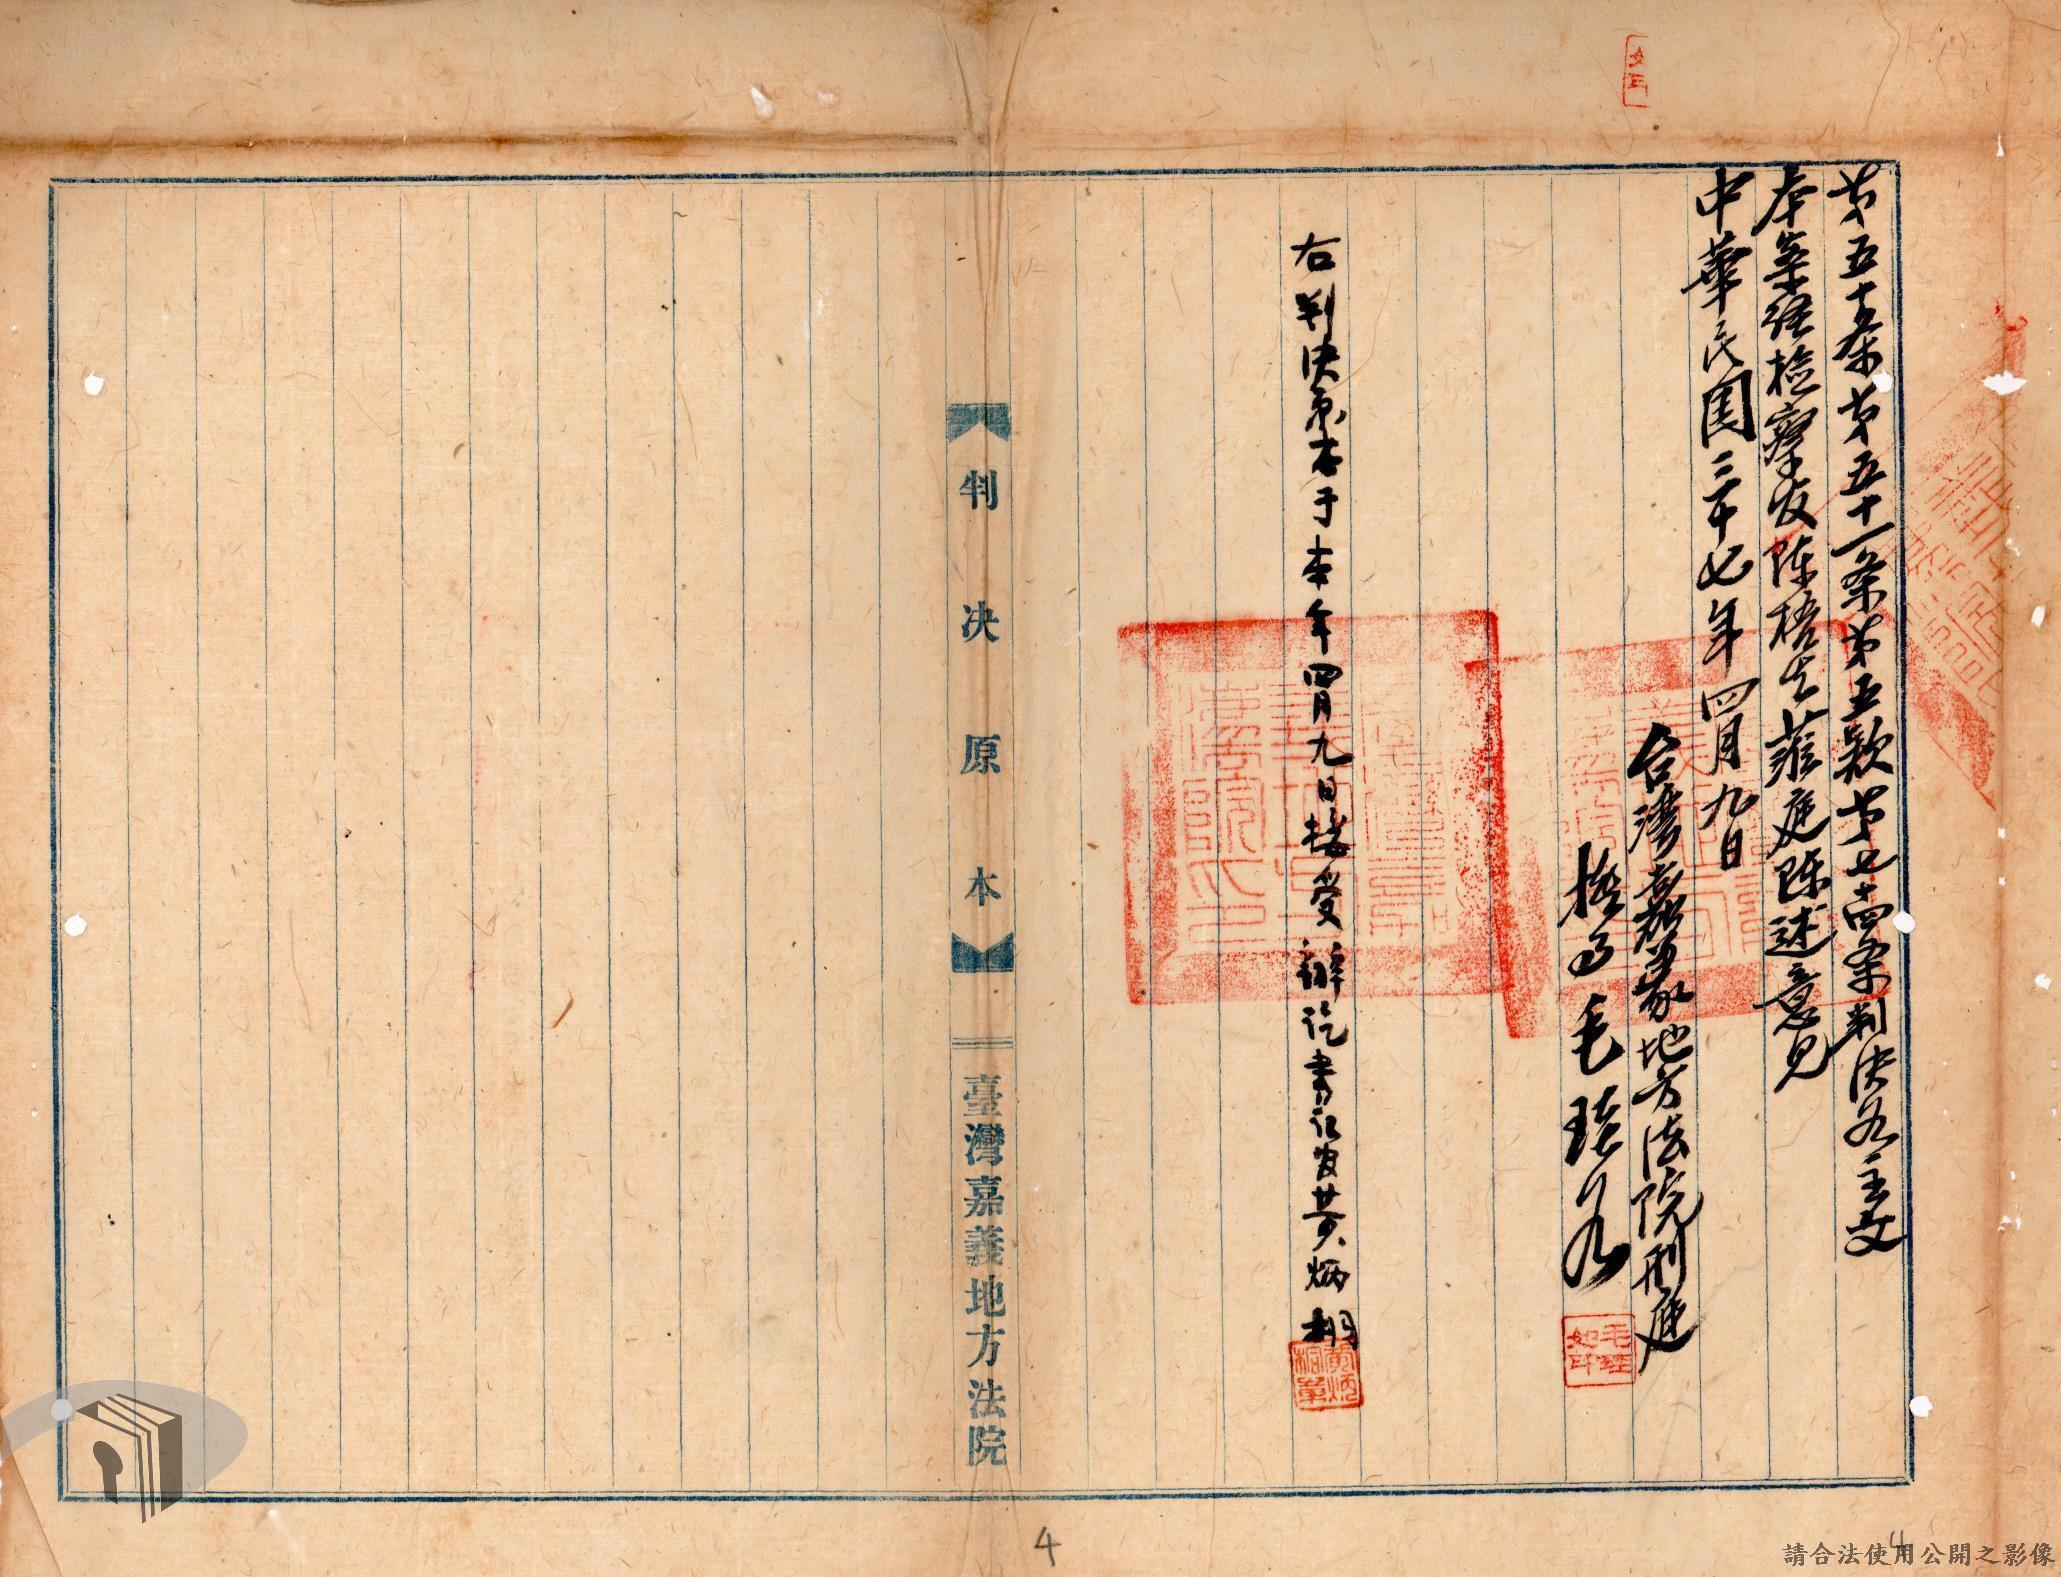 第五十条第五十一条第五款第七十四条判决如主文
本案经檢察官陈梧生蒞庭陈述意見
中華民国三十七年四月九日
台湾嘉義地方法院刑庭
推事毛琺如
右判决原本于本年四月九日接受辦讫書记官黄炳桐
黄炳桐章
判决原本
臺灣嘉義地方法院
4
4
請合法使用公開之影像